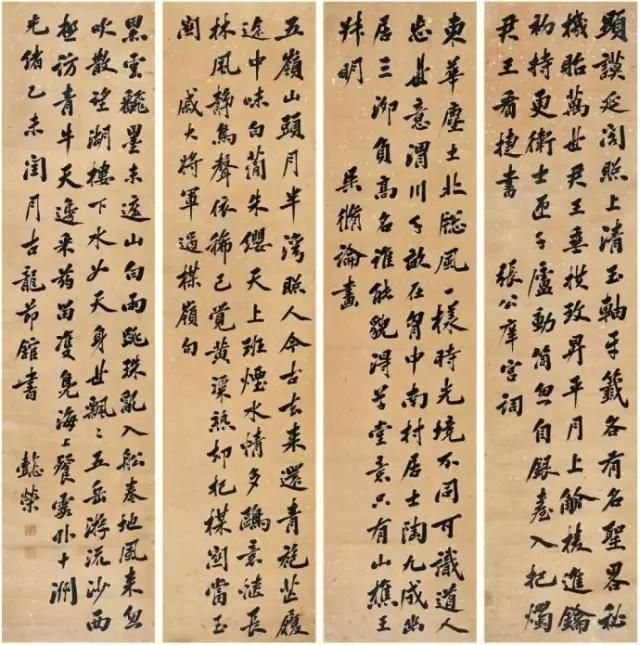 顯謨延閣照上清玉軸牙籤各有名聖畧秘
機貽萬世君王垂拱致昇平月上觚棱進鑰
初持更衛士匝千廬動簡忽自銀臺入把燭
君王看捷書 張公庠宮詞
東華塵土北牕風一樣時光境不同可識道人
忘世意渭川千畝在胷中南村居士陶九成幽
居三泖負高名誰能貌得草堂意只有山樵王
叔明 吳脩論畫
五嶺山頭月半灣照人今古去來還青旌芒履
途中味白簡朱纓天上班煙水情多鷗意緩長
林風静鳥聲依稀已覺黃粱熟却把楳関當玉
関 戚大將軍過楳嶺句
黑雲飜墨未遮山白雨跳珠亂入船卷地風來忽
吹散望湖樓下水如天身世飄々五岳游流沙西
極訪青牛天邊采药留雙凫海上餐霞外十洲
光緒乙未閏月古龍節館書 懿榮